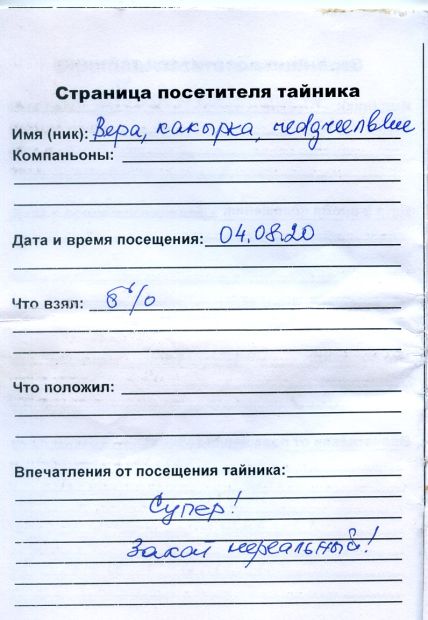 Страница посетителя тайника
Имя (ник): Вера, какырка,
Компаньоны:
Дата и время посещения: 04.08.20
Что взял: б/о
Что положил:
Впечатления от посещения тайника:
Супер!
Закат нереальный!